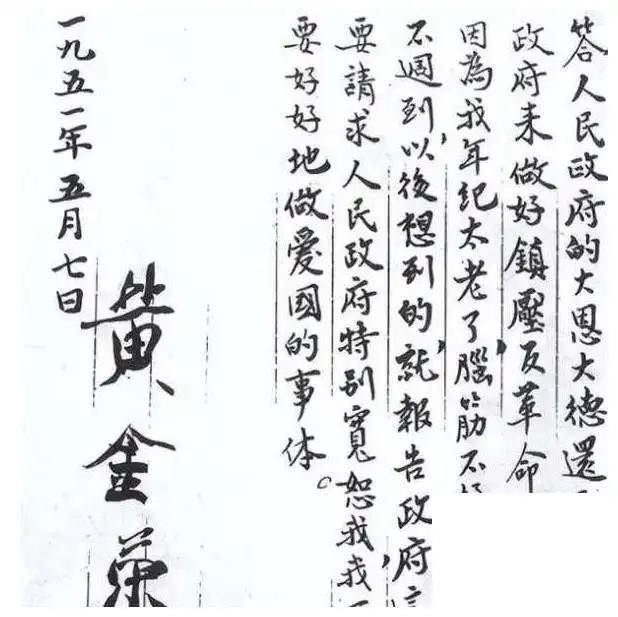 答人民政府的大恩大德還
政府来做好鎮壓反革命
因為我年纪太老了,腦筋不
不週到,以後想到的,就報告政府,
要請求人民政府特别寬恕我,我
要好好地做愛國的事体。
一九五一年五月七日
黄金荣